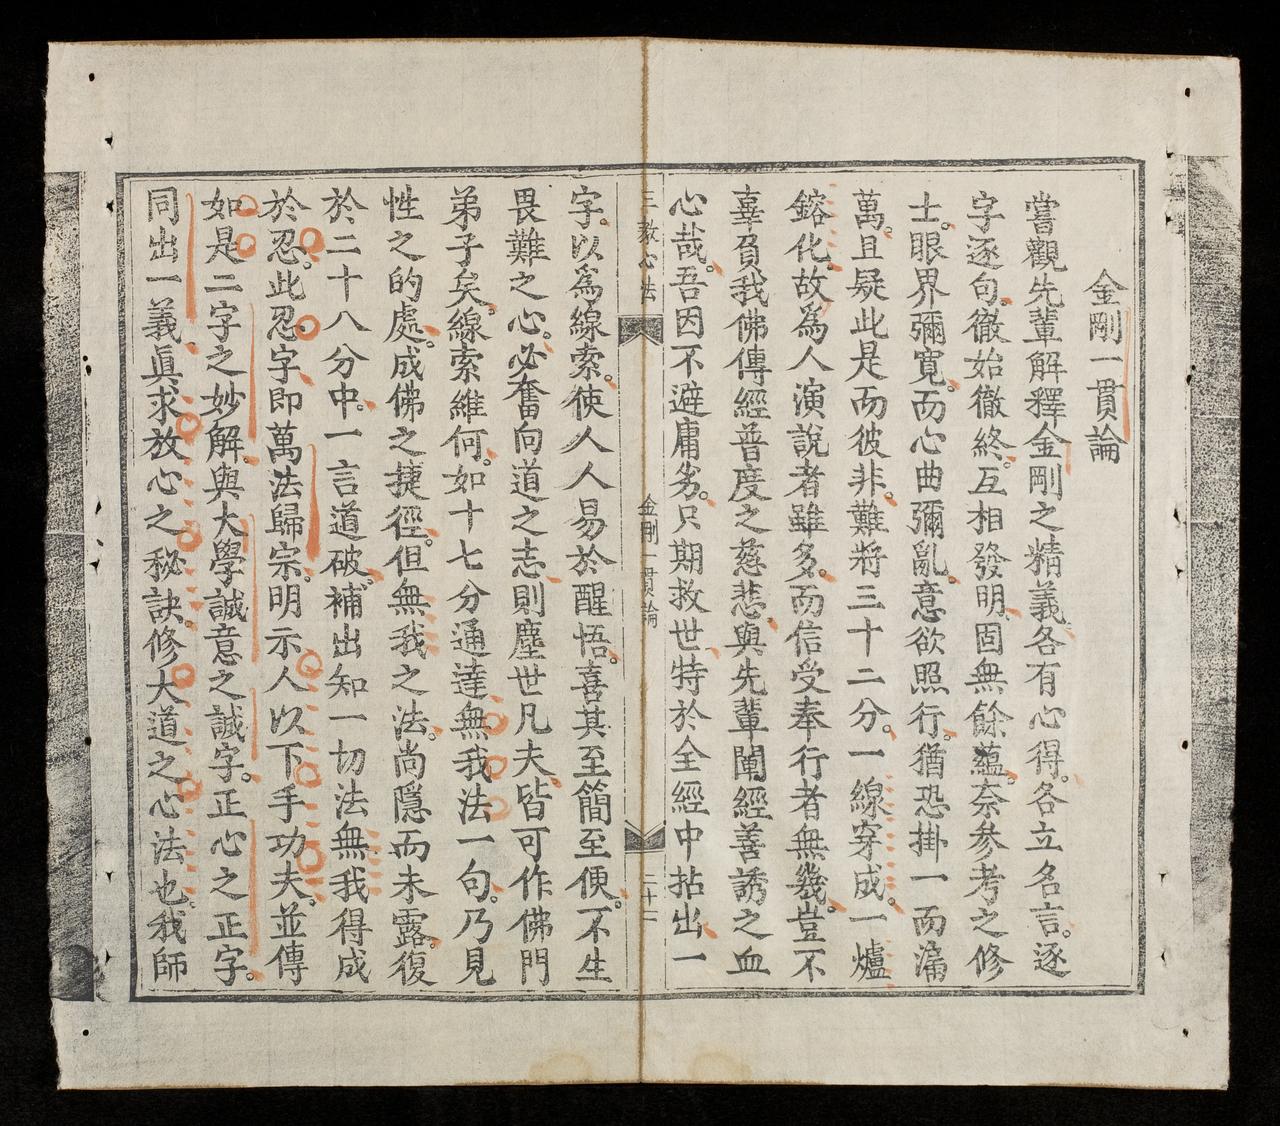 金剛一貫論
嘗觀先輩解釋金剛之精義各有心得。各立名言。逐
字逐句。徹始徹終。互相發明。固無餘蘊。奈參考之修
士。眼界彌寬。而心曲彌亂。意欲照行。猶恐掛一而漏
萬。且疑此是而彼非。難將三十二分。一線穿成。一爐
鎔化。故為人演說者雖多。而信受奉行者無幾。豈不
辜負我佛傳經普度之慈悲。與先輩闡經善誘之血
心哉。吾因不避庸劣。只期救世。特於全經中拈出一
三教心法
金剛一貫論
二十二
字。以為線索。使人人易於醒悟。喜其至簡至便。不生
畏難之心。必奮向道之志。則塵世凡夫。皆可作佛門
弟子矣。線索維何。如十七分通達無我法一句。乃見
性之的處。成佛之捷徑。但無我之法。尚隱而未露。復
於二十八分中。一言道破。補出知一切法無我得成
於忍。此忍字即萬法歸宗。明示人以下手功夫。並傳
如是二字之妙解。與大學誠意之誠字。正心之正字。
同出一義。眞求放心之秘訣。修大道之心法也。我師